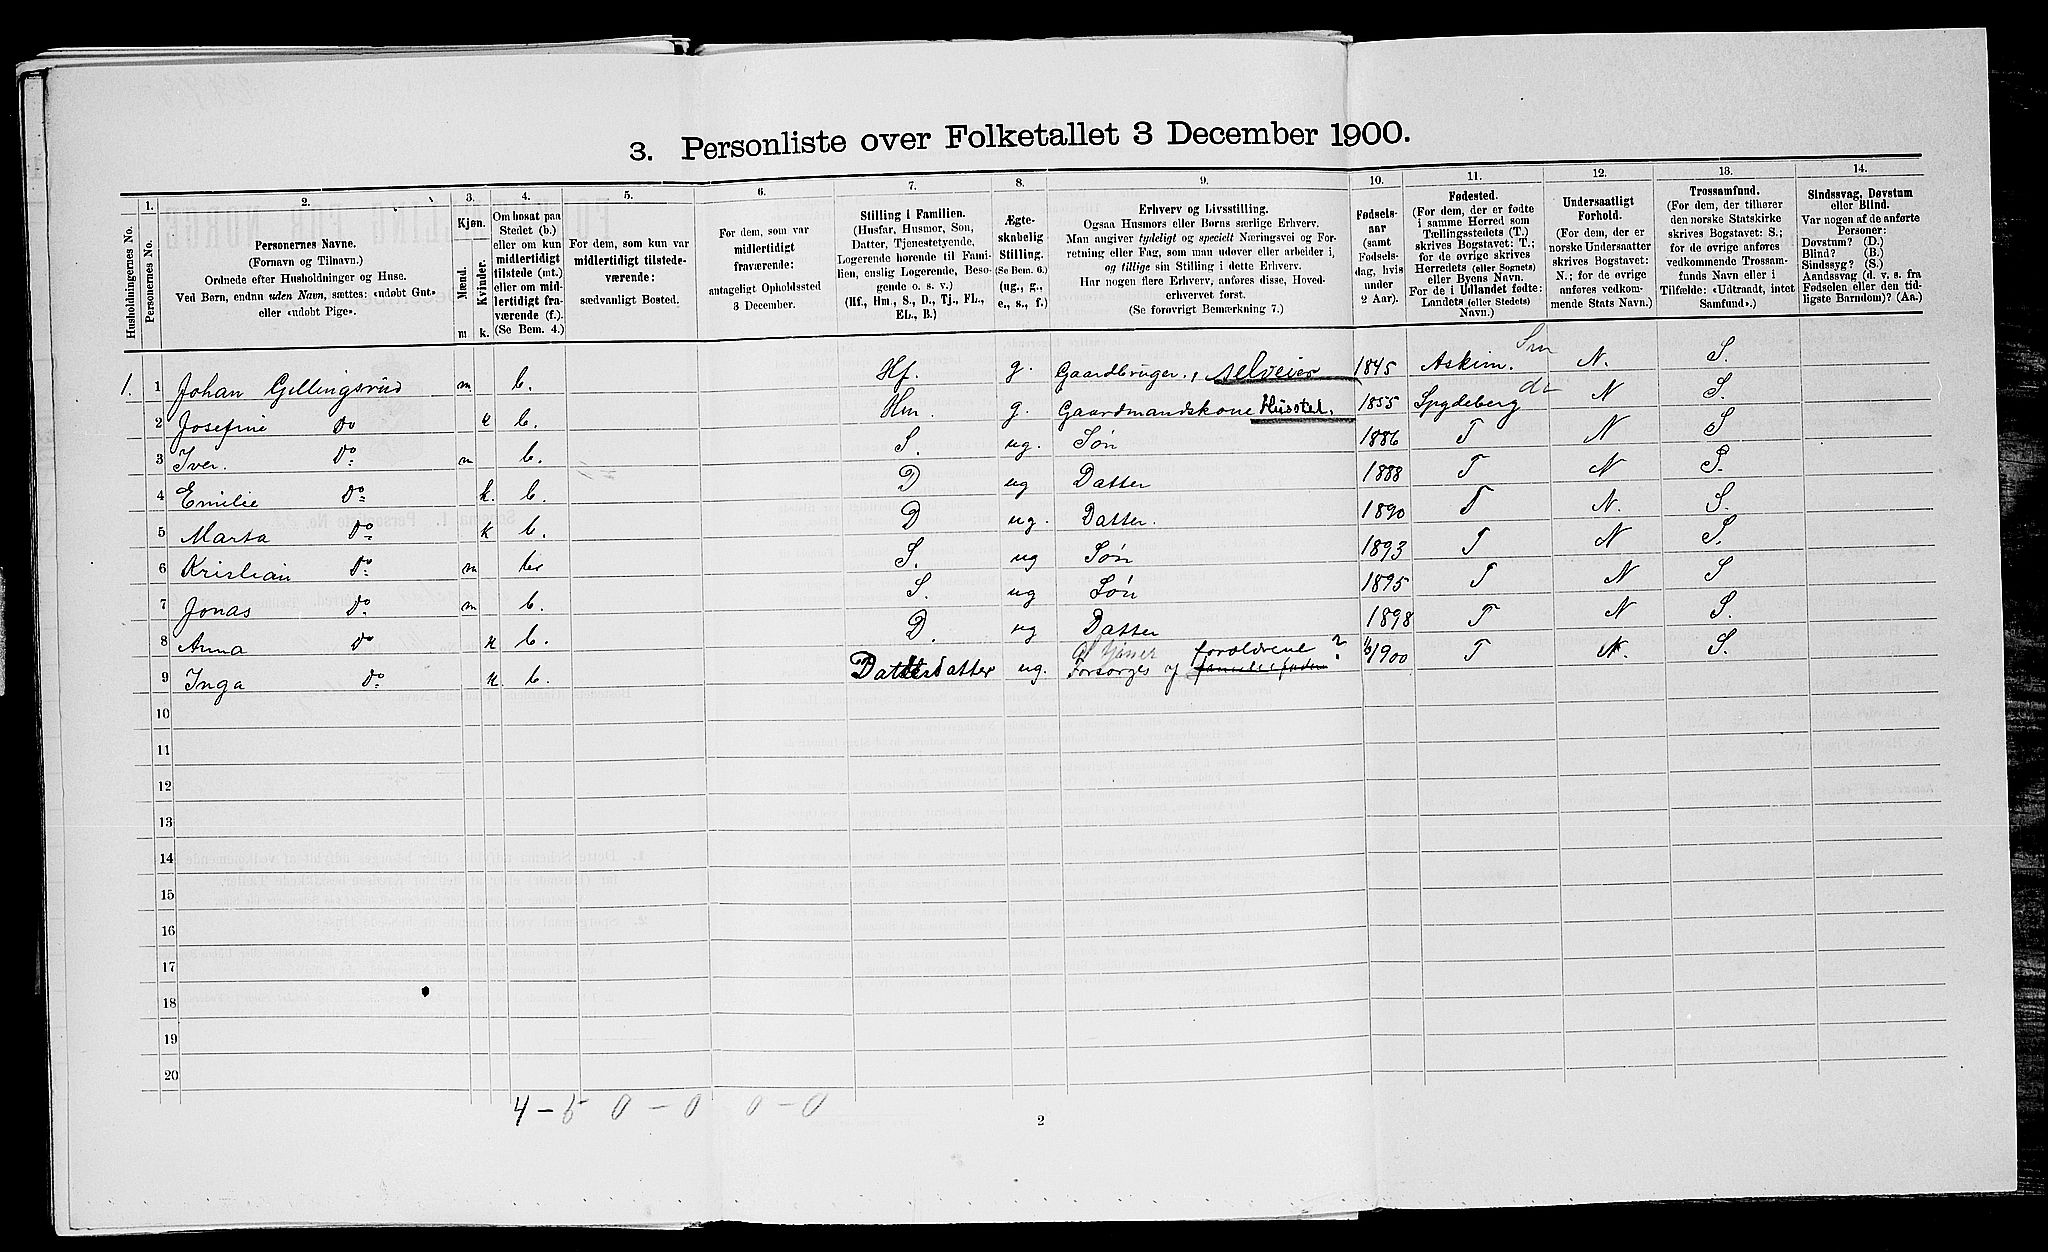 3. Personliste over Folketallet 3 December 1900.
Husholdningernes No.
1. Personernes No.
2. Personernes Navne. (Fornavn og Tilnavn.) Ordnede efter Husholdninger og Huse. Ved Børn, endnu uden Navn, sættes: «udøbt Gut» eller «udøbt Pige».
3. Kjøn. Mænd. m Kvinder. k.
4. Om bosat paa Stedet (b.) eller om kun midlertidigt tilstede (mt.) eller om midlertidigt fraværende (f.) (Se Bem. 4.)
5. For dem, som kun var midlertidigt tilstedeværende: sædvanligt Bosted.
6. For dem, som var midlertidigt fraværende: antageligt Opholdssted 3 December.
7. Stilling i Familien. (Husfar, Husmor, Søn, Datter, Tjenestetyende, Logerende hørende til Familien, enslig Logerende, Besøgende o. s. v.) (Hf., Hm., S., D., Tj., FL., EL., B.)
8. Ægteskabelig Stilling. (Se Bem. 6.) (ug., g., e., s., f.)
9. Erhverv og Livsstilling. Ogsaa Husmors eller Børns særlige Erhverv. Man angiver tydeligt og specielt Næringsvei og Forretning eller Fag, som man udøver eller arbeider i, og tillige sin Stilling i dette Erhverv. Har nogen flere Erhverv, anføres disse, Hovederhvervet først. (Se forøvrigt Bemærkning 7.)
10. Fødselsaar (samt Fødselsdag, hvis under 2 Aar).
11. Fødested. (For dem, der er fødte i samme Herred som Tællingsstedets (T.) skrives Bogstavet: T.; for de øvrige skrives Herredets (eller Sognets) eller Byens Navn. For de i Udlandet fødte: Landets (eller Stedets) Navn.)
12. Undersaatligt Forhold. (For dem, der er norske Undersaatter skrives Bogstavet: N.; for de øvrige anføres vedkommende Stats Navn.)
13. Trossamfund. (For dem, der tilhører den norske Statskirke skrives Bogstavet: S.; for de øvrige anføres vedkommende Trossamfunds Navn eller i Tilfælde: «Udtraadt, intet Samfund».)
14. Sindssvag, Døvstum eller Blind. Var nogen af de anførte Personer: Døvstum? (D.) Blind? (B.) Sindssyg? (S.) Aandssvag (d. v. s. fra Fødselen eller den tidligste Barndom)? (Aa.)
1. 1 Johan Gellingsrud m b. Hf. g. Gaardbruger, selveier 1845 Askim. Sm N. S.
2 Josefine Do k b. Hm. g. Gaardmandskone Husstel. 1855 Spydeberg do N S.
3 Iver. Do m b. S. ug. Søn 1886 T N S
4 Emilie Do k. b. D ug Datter 1888 T N S.
5 Marta Do k b. D ug. Datter. 1890 T N. S.
6 Kristian Do m b. S. ug Søn 1893 T N S.
7 Jonas Do m b. S. ug Søn 1895 T N S
8 Anna Do k b. D. ug Datter 1898 T N S.
9 Inga Do k b. Datterdatter ug. Forsørges af forældrene ? 1900 T N. S.
10
11
12
13
14
15
16
17
18
19
20
4 – 5 0 – 0 0 – 0
2